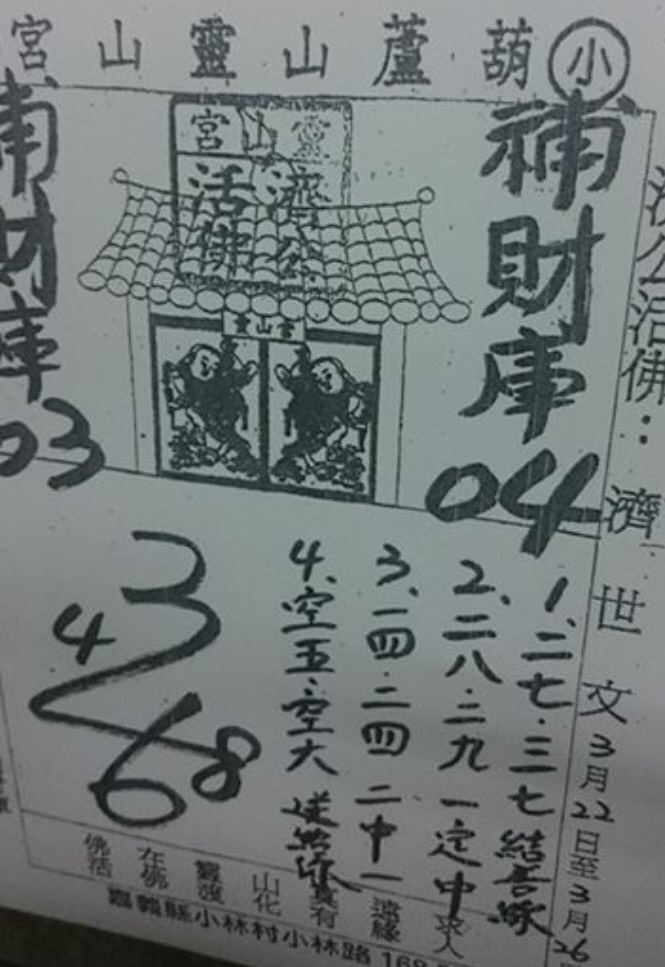 小 葫蘆山靈山宮
濟公活佛：濟世文 3月22日至3月26
補財庫
04
靈山宮
濟公
活佛
靈山宮
財庫
03
1、二七．三七 結善緣
2、二八．二九 一定中
3、一四．二四 二中一
4、空五．空六 送給你
3
4
6
8
求人
遠緣
真有
山化
靈渡
在佛
佛活
嘉義縣小林村小林路168